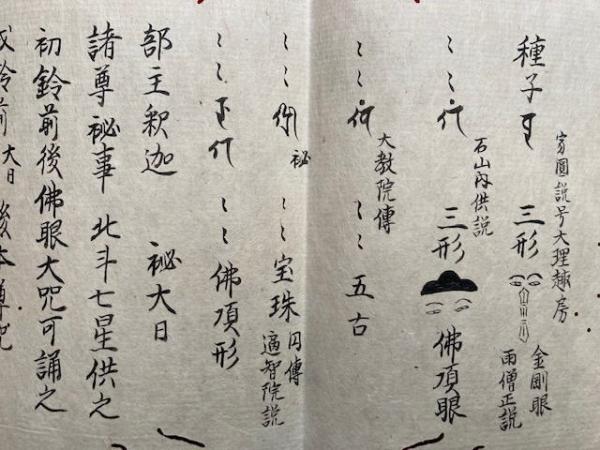 寛圓説号大理趣房
種子 三形 金剛眼
雨僧正説
石山内供説
〻〻 三形 佛頂眼
大教院傳
〻〻 〻〻五古
〻〻 秘 〻〻宝珠 円傳
遍智院説
〻〻 〻〻佛頂形
部主釈迦 秘大日
諸尊秘事 北斗七星供之
初鈴前後佛眼大咒可誦之
鈴前大日 後本尊咒